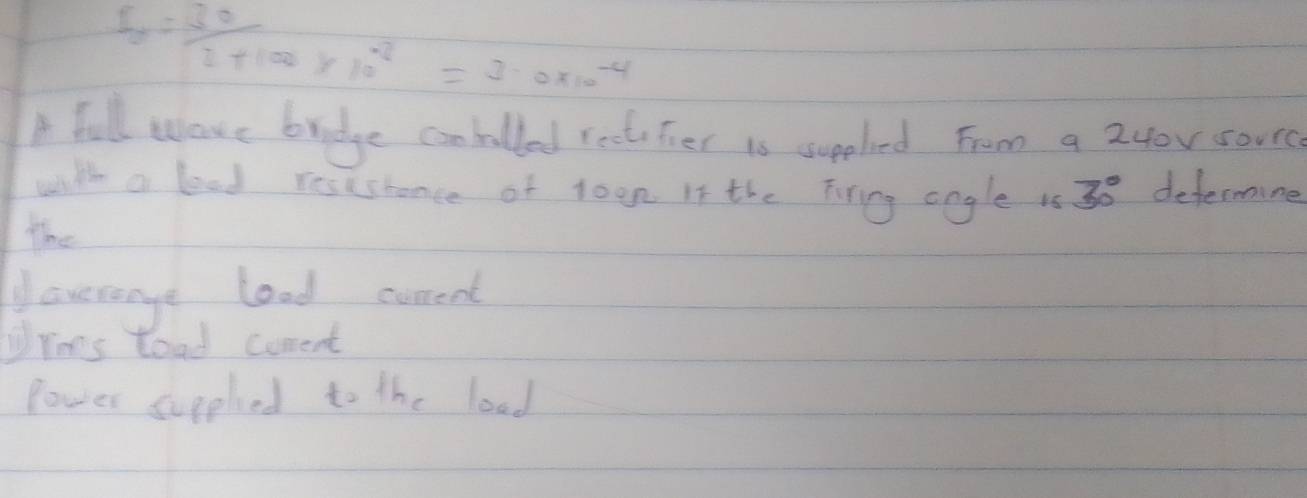 = 30
2 + 100 x 10^-3 = 3.0x10^-4
A full wave bridge controlled rectifier is supplied From a 240v source
with a load resistance of 100Ω if the Firing angle is 30° determine
the
i) averange load current
ii) rms load current
Power supplied to the load